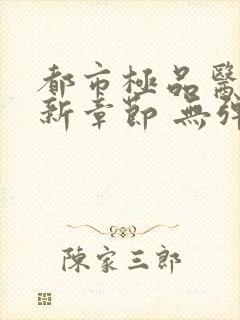 都市極品醫
新章節 無彈
陳家三郎